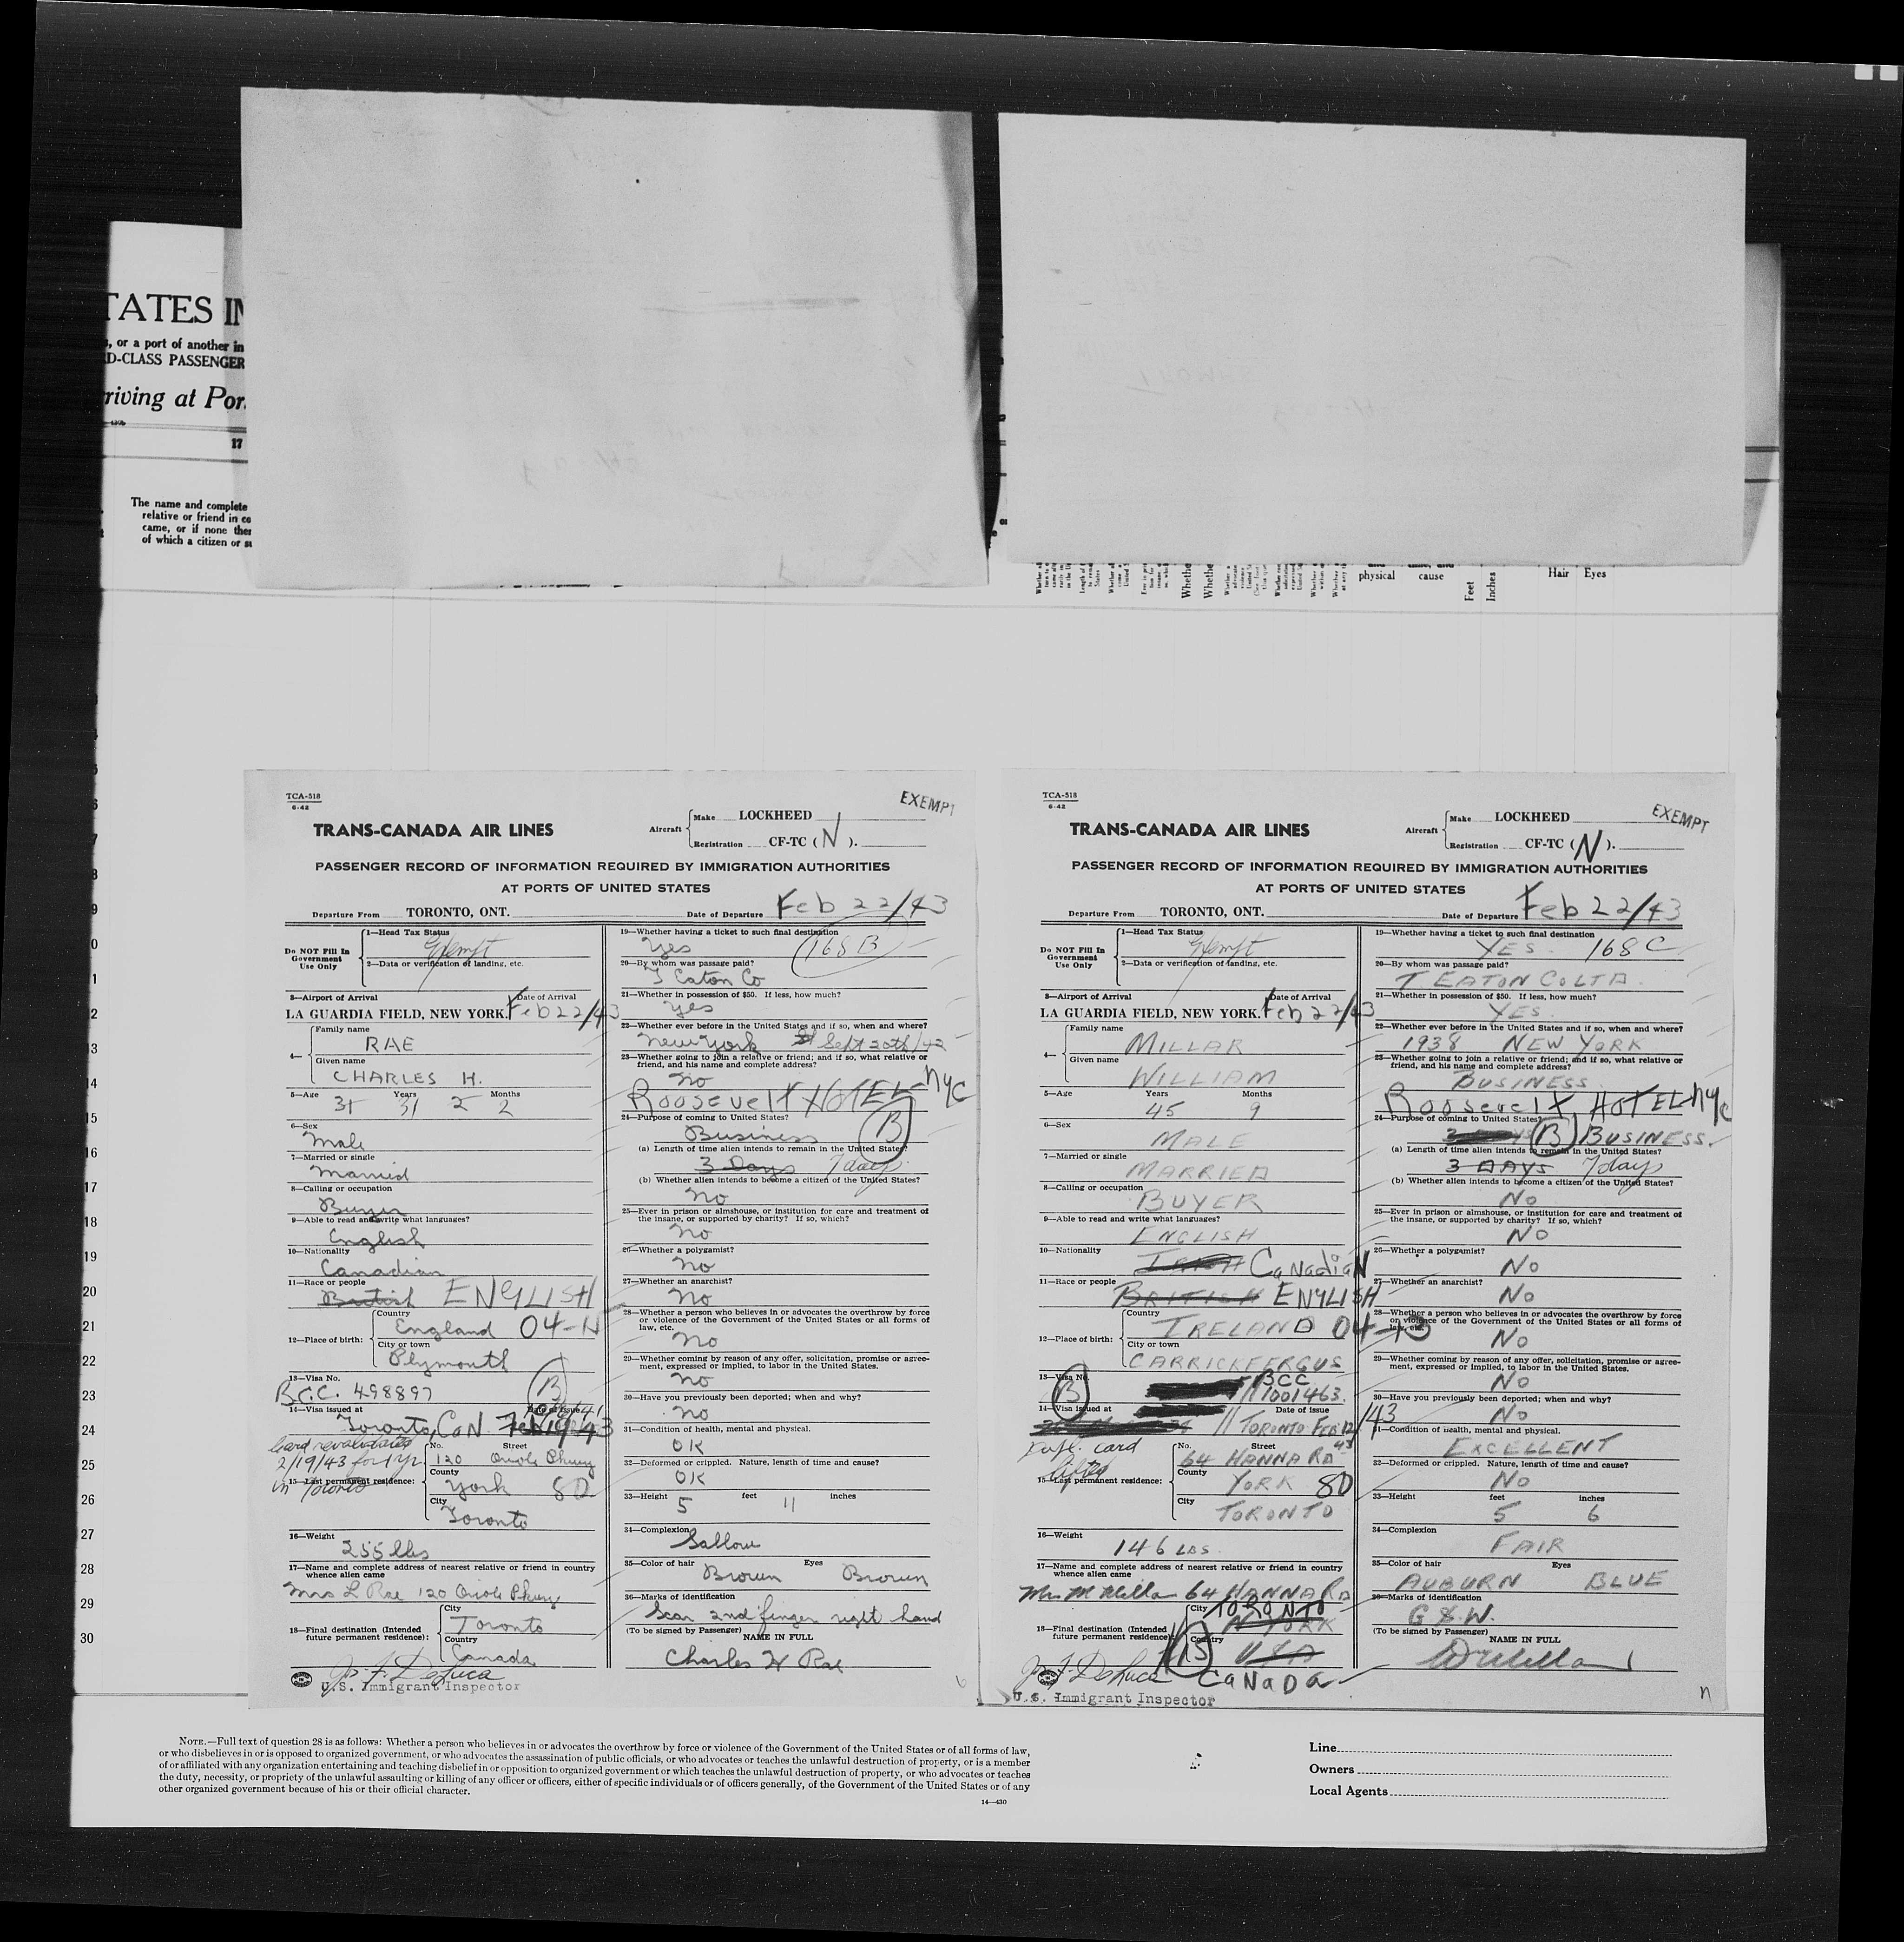 TATES IN
, or a port of another in
D-CLASS PASSENGER
riving at Por
17
The name and complete
relative or friend in co
came, or if none ther
of which a citizen or su
physical cause Feet Inches Hair Eyes
TCA-518
6-42
EXEMPT
TRANS-CANADA AIR LINES
Aircraft
Make LOCKHEED
Registration CF-TC ( N ).
PASSENGER RECORD OF INFORMATION REQUIRED BY IMMIGRATION AUTHORITIES
AT PORTS OF UNITED STATES
Departure From TORONTO, ONT. Date of Departure Feb 22/43
Do NOT Fill In
Government
Use Only
1—Head Tax Status
Exempt
2—Data or verification of landing, etc.
3—Airport of Arrival Date of Arrival
LA GUARDIA FIELD, NEW YORK. Feb 22/43
4—
Family name
RAE
Given name
CHARLES H.
5—Age Years Months
31 31 2 2
6—Sex
Male
7—Married or single
Married
8—Calling or occupation
Buyer
9—Able to read and write what languages?
English
10—Nationality
Canadian
11—Race or people
British ENGLISH
12—Place of birth:
Country
England 04-N
City or town
Plymouth
13—Visa No.
B.C.C. 498897 B
14—Visa issued at Date of issue
Toronto, CAN. Feb 19/43
Card revalidated
2/19/43 for 1 yr
in Toronto
15—Last permanent residence:
No. Street
120 Oriole Pkwy
County
York 80
City
Toronto
16—Weight
255 lbs
17—Name and complete address of nearest relative or friend in country
whence alien came
Mrs L Rae 120 Oriole Pkwy
18—Final destination (Intended
future permanent residence):
City
Toronto
Country
Canada
U.S. Immigrant Inspector
19—Whether having a ticket to such final destination
Yes 168 B
20—By whom was passage paid?
T Eaton Co
21—Whether in possession of $50. If less, how much?
Yes
22—Whether ever before in the United States and if so, when and where?
New York Sept 20th/42
23—Whether going to join a relative or friend; and if so, what relative or
friend, and his name and complete address?
No
Roosevelt HOTEL NYC
24—Purpose of coming to United States?
Business B
(a) Length of time alien intends to remain in the United States?
3 Days 7 days
(b) Whether alien intends to become a citizen of the United States?
No
25—Ever in prison or almshouse, or institution for care and treatment of
the insane, or supported by charity? If so, which?
No
26—Whether a polygamist?
No
27—Whether an anarchist?
No
28—Whether a person who believes in or advocates the overthrow by force
or violence of the Government of the United States or all forms of
law, etc.
No
29—Whether coming by reason of any offer, solicitation, promise or agree-
ment, expressed or implied, to labor in the United States.
No
30—Have you previously been deported; when and why?
No
31—Condition of health, mental and physical.
OK
32—Deformed or crippled. Nature, length of time and cause?
OK
33—Height feet inches
5 11
34—Complexion
Sallow
35—Color of hair Eyes
Brown Brown
36—Marks of identification
Scar 2nd finger right hand
(To be signed by Passenger)
NAME IN FULL
Charles H Rae
TCA-518
6-42
EXEMPT
TRANS-CANADA AIR LINES
Aircraft
Make LOCKHEED
Registration CF-TC ( N ).
PASSENGER RECORD OF INFORMATION REQUIRED BY IMMIGRATION AUTHORITIES
AT PORTS OF UNITED STATES
Departure From TORONTO, ONT. Date of Departure Feb 22/43
Do NOT Fill In
Government
Use Only
1—Head Tax Status
Exempt
2—Data or verification of landing, etc.
3—Airport of Arrival Date of Arrival
LA GUARDIA FIELD, NEW YORK. Feb 22/43
4—
Family name
MILLAR
Given name
WILLIAM
5—Age Years Months
45 9
6—Sex
MALE
7—Married or single
MARRIED
8—Calling or occupation
BUYER
9—Able to read and write what languages?
ENGLISH
10—Nationality
CanadiaN
11—Race or people
BRITISH ENGLISH
12—Place of birth:
Country
IRELAND 04-13
City or town
CARRICKFERGUS
13—Visa No. BCC
B 1001463
14—Visa issued at Date of issue
TORONTO FEB 12/43
Dupl. card
lifted
15—Last permanent residence:
No. Street
64 HANNA RD
County
YORK 80
City
TORONTO
16—Weight
146 LBS.
17—Name and complete address of nearest relative or friend in country
whence alien came
Mrs M Millar 64 HANNA RD
18—Final destination (Intended
future permanent residence):
City TORONTO
N YORK
Country
USA
CaNaDa
U.S. Immigrant Inspector
19—Whether having a ticket to such final destination
YES. 168 C
20—By whom was passage paid?
T EATON CO LTD.
21—Whether in possession of $50. If less, how much?
YES.
22—Whether ever before in the United States and if so, when and where?
1938 NEW YORK
23—Whether going to join a relative or friend; and if so, what relative or
friend, and his name and complete address?
BUSINESS.
Roosevelt, HOTEL NYC
24—Purpose of coming to United States?
B BUSINESS.
(a) Length of time alien intends to remain in the United States?
3 DAYS 7 days
(b) Whether alien intends to become a citizen of the United States?
No
25—Ever in prison or almshouse, or institution for care and treatment of
the insane, or supported by charity? If so, which?
No
26—Whether a polygamist?
No
27—Whether an anarchist?
No
28—Whether a person who believes in or advocates the overthrow by force
or violence of the Government of the United States or all forms of
law, etc.
No
29—Whether coming by reason of any offer, solicitation, promise or agree-
ment, expressed or implied, to labor in the United States.
No
30—Have you previously been deported; when and why?
No
31—Condition of health, mental and physical.
EXCELLENT
32—Deformed or crippled. Nature, length of time and cause?
No
33—Height feet inches
5 6
34—Complexion
FAIR
35—Color of hair Eyes
AUBURN BLUE
36—Marks of identification
G.S.W.
(To be signed by Passenger)
NAME IN FULL
W Millar
n
NOTE.—Full text of question 28 is as follows: Whether a person who believes in or advocates the overthrow by force or violence of the Government of the United States or of all forms of law,
or who disbelieves in or is opposed to organized government, or who advocates the assassination of public officials, or who advocates or teaches the unlawful destruction of property, or is a member
of or affiliated with any organization entertaining and teaching disbelief in or opposition to organized government or which teaches the unlawful destruction of property, or who advocates or teaches
the duty, necessity, or propriety of the unlawful assaulting or killing of any officer or officers, either of specific individuals or of officers generally, of the Government of the United States or of any
other organized government because of his or their official character.
14—430
Line
Owners
Local Agents